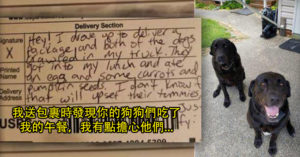 Delivery Section
Signature
X
Hey! I drove up to deliver a
package and both of the dogs
jumped in my truck. They
got into my lunch and ate
Printed
Name
an egg and some carrots and
pumpkin seeds. I don't know if
Delivery
that will upset their tummies
US
我送包裹時發現你的狗狗們吃了
我的午餐, 我有點擔心他們...